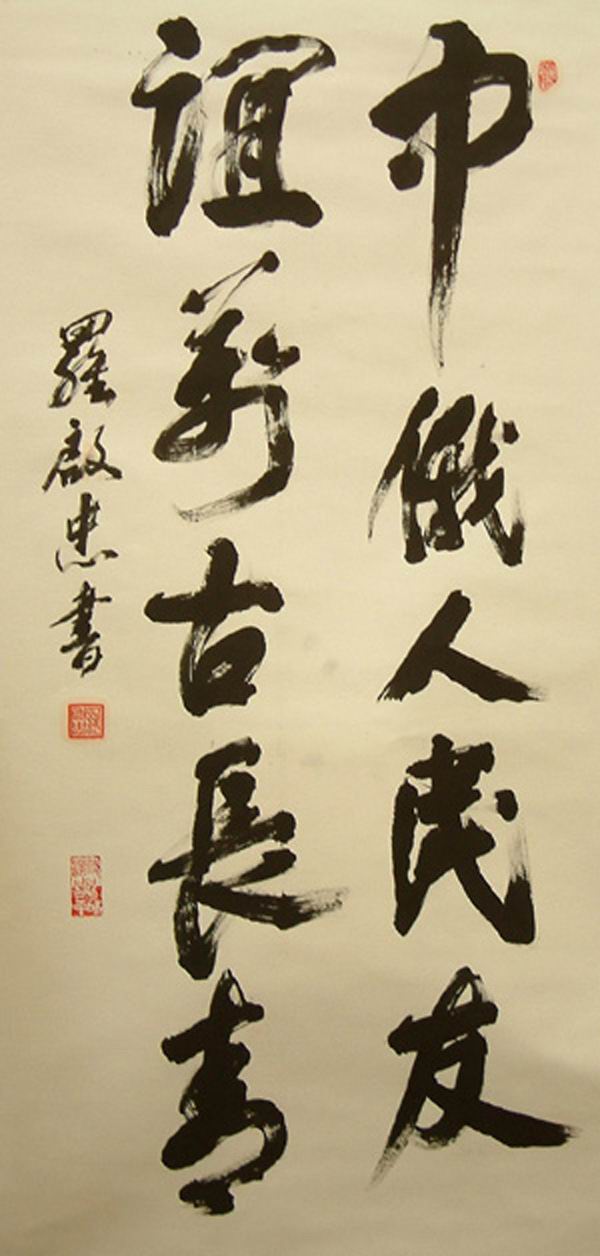 中俄人民友
誼萬古長青
羅啟忠書